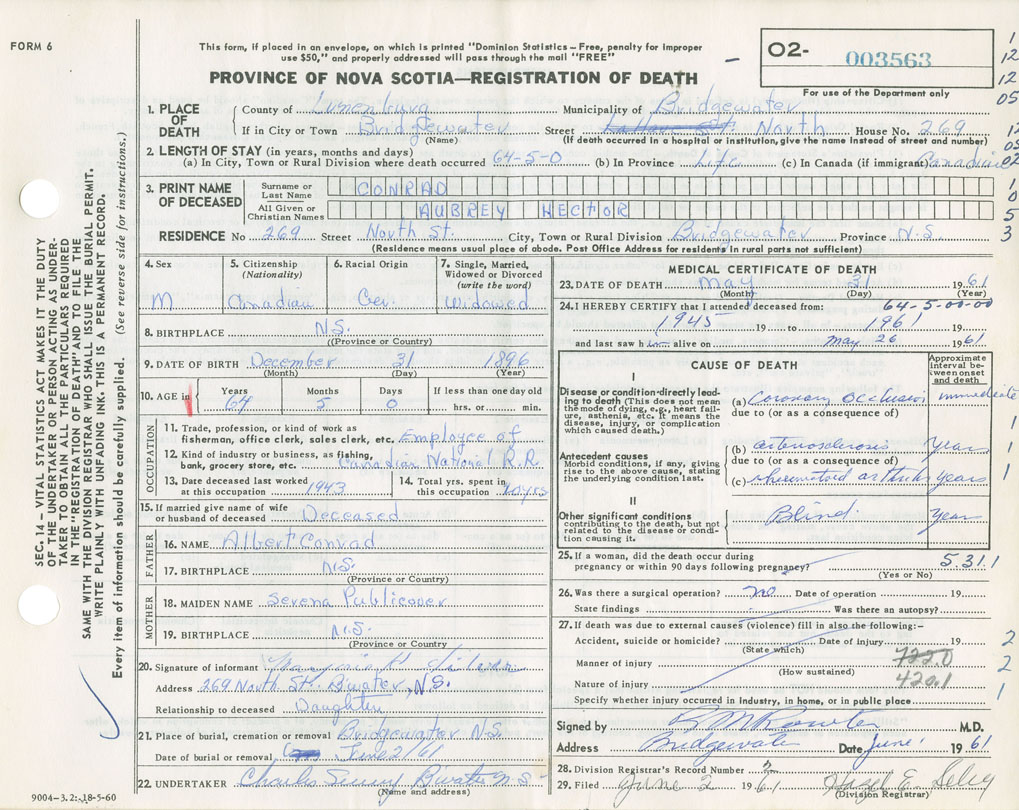 FORM 6
This form, if placed in an envelope, on which is printed "Dominion Statistics – Free, penalty for improper
use $50," and properly addressed will pass through the mail "FREE"
PROVINCE OF NOVA SCOTIA—REGISTRATION OF DEATH
O2- 003563
For use of the Department only
1. PLACE OF DEATH
County of Lunenburg Municipality of Bridgewater
If in City or Town Bridgewater Street North House No. 269
(Name) (If death occurred in a hospital or institution, give the name instead of street and number)
2. LENGTH OF STAY (in years, months and days)
(a) In City, Town or Rural Division where death occurred 64-5-0 (b) In Province Life (c) In Canada (if immigrant) Canadian
3. PRINT NAME OF DECEASED
Surname or Last Name CONRAD
All Given or Christian Names AUBREY HECTOR
RESIDENCE No 269 Street North St. City, Town or Rural Division Bridgewater Province N.S.
(Residence means usual place of abode. Post Office Address or residents in rural parts not sufficient)
4. Sex M
5. Citizenship (Nationality) Canadian
6. Racial Origin Ger.
7. Single, Married, Widowed or Divorced (write the word) Widowed
8. BIRTHPLACE N.S.
(Province or Country)
9. DATE OF BIRTH December 31 1896
(Month) (Day) (Year)
10. AGE in Years 64 Months 5 Days 0 If less than one day old hrs. or min.
OCCUPATION
11. Trade, profession, or kind of work as
fisherman, office clerk, sales clerk, etc. Employee of
12. Kind of industry or business, as fishing,
bank, grocery store, etc. Canadian National R.R
13. Date deceased last worked
at this occupation 1943
14. Total yrs. spent in
this occupation yrs
15. If married give name of wife
or husband of deceased Deceased
FATHER
16. NAME Albert Conrad
17. BIRTHPLACE N.S.
(Province or Country)
MOTHER
18. MAIDEN NAME Serena Publicover
19. BIRTHPLACE N.S.
(Province or Country)
20. Signature of informant
Address 269 North St. B'water, N.S.
Relationship to deceased Daughter
21. Place of burial, cremation or removal Bridgewater N.S.
Date of burial or removal June 2/61
22. UNDERTAKER Charles B'water N.S
(Name and address)
9004-3.2: 18-5-60
MEDICAL CERTIFICATE OF DEATH
23. DATE OF DEATH May 31 1961
(Month) (Day) (Year)
64-5-00-00
24. I HEREBY CERTIFY that I attended deceased from:
1945 19 to 1961 19
and last saw him alive on May 26 1961
CAUSE OF DEATH
Approximate interval between onset and death
I
Disease or condition directly leading
to death (This does not mean
the mode of dying, e.g., heart failure,
asthenia, etc. It means the
disease, injury, or complication
which caused death.)
(a) Coronary Occlusion immediate
due to (or as a consequence of)
Antecedent causes
Morbid conditions, if any, giving
rise to the above cause, stating
the underlying condition last.
(b) arteriosclerosis Years
due to (or as a consequence of)
(c) rheumatoid arthritis years
II
Other significant conditions
contributing to the death, but not
related to the disease or condition
causing it.
Blind Year
25. If a woman, did the death occur during
pregnancy or within 90 days following pregnancy? 5.31.1
(Yes or No)
26. Was there a surgical operation? no Date of operation 19
State findings Was there an autopsy?
27. If death was due to external causes (violence) fill in also the following:-
Accident, suicide or homicide? Date of injury 19
(State which)
Manner of injury 722.0
(How sustained)
Nature of injury 420.1
Specify whether injury occurred in Industry, in home, or in public place
Signed by M.D.
Address Bridgewater Date June 1 1961
28. Division Registrar's Record Number 2
29. Filed June 2 1961 Hazel E.
(Division Registrar)
SEC. 14 – VITAL STATISTICS ACT MAKES IT THE DUTY
OF THE UNDERTAKER OR PERSON ACTING AS UNDERTAKER
TO OBTAIN ALL THE PARTICULARS REQUIRED
IN THE "REGISTRATION OF DEATH" AND TO FILE THE
SAME WITH THE DIVISION REGISTRAR WHO SHALL ISSUE THE BURIAL PERMIT.
WRITE PLAINLY WITH UNFADING INK. THIS IS A PERMANENT RECORD.
Every item of information should be carefully supplied. (See reverse side for instructions.)